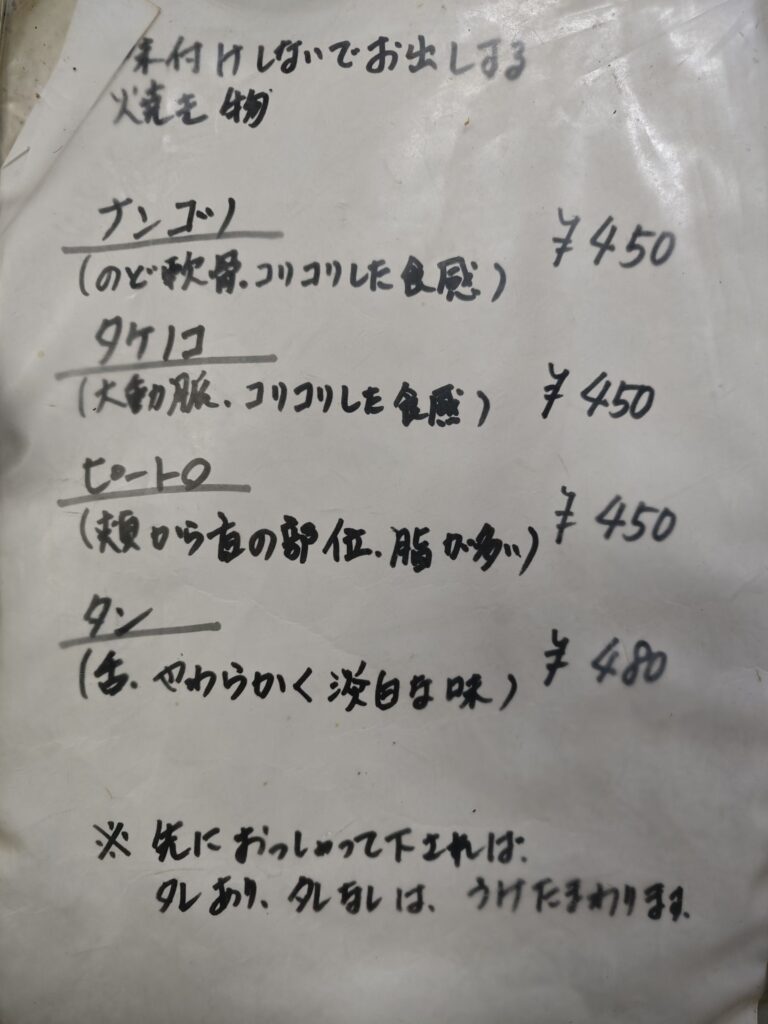 味付けしないでお出しする
焼き物
ナンコツ ¥450
(のど軟骨、コリコリした食感)
タケノコ ¥450
(大動脈、コリコリした食感)
ピートロ ¥450
(頬から首の部位、脂が多い)
タン ¥480
(舌、やわらかく淡白な味)
※ 先におっしゃって下されば、
タレあり、タレなしは、うけたまわります。